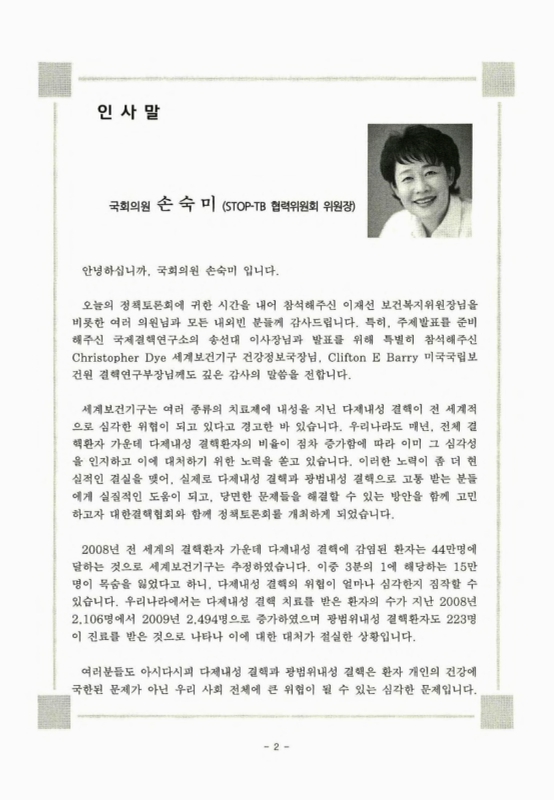 인 사 말
국회의원 손 숙 미 (STOP-TB 협력위원회 위원장)
안녕하십니까, 국회의원 손숙미 입니다.
오늘의 정책토론회에 귀한 시간을 내어 참석해주신 이재선 보건복지위원장님을
비롯한 여러 의원님과 모든 내외빈 분들께 감사드립니다. 특히, 주제발표를 준비
해주신 국제결핵연구소의 송선대 이사장님과 발표를 위해 특별히 참석해주신
Christopher Dye 세계보건기구 건강정보국장님, Clifton E Barry 미국국립보
건원 결핵연구부장님께도 깊은 감사의 말씀을 전합니다.
세계보건기구는 여러 종류의 치료제에 내성을 지닌 다제내성 결핵이 전 세계적
으로 심각한 위협이 되고 있다고 경고한 바 있습니다. 우리나라도 매년, 전체 결
핵환자 가운데 다제내성 결핵환자의 비율이 점차 증가함에 따라 이미 그 심각성
을 인지하고 이에 대처하기 위한 노력을 쏟고 있습니다. 이러한 노력이 좀 더 현
실적인 결실을 맺어, 실제로 다제내성 결핵과 광범내성 결핵으로 고통 받는 분들
에게 실질적인 도움이 되고, 당면한 문제들을 해결할 수 있는 방안을 함께 고민
하고자 대한결핵협회와 함께 정책토론회를 개최하게 되었습니다.
2008년 전 세계의 결핵환자 가운데 다제내성 결핵에 감염된 환자는 44만명에
달하는 것으로 세계보건기구는 추정하였습니다. 이중 3분의 1에 해당하는 15만
명이 목숨을 잃었다고 하니, 다제내성 결핵의 위협이 얼마나 심각한지 짐작할 수
있습니다. 우리나라에서는 다제내성 결핵 치료를 받은 환자의 수가 지난 2008년
2,106명에서 2009년 2,494명으로 증가하였으며 광범위내성 결핵환자도 223명
이 진료를 받은 것으로 나타나 이에 대한 대처가 절실한 상황입니다.
여러분들도 아시다시피 다제내성 결핵과 광범위내성 결핵은 환자 개인의 건강에
국한된 문제가 아닌 우리 사회 전체에 큰 위협이 될 수 있는 심각한 문제입니다.
- 2 -